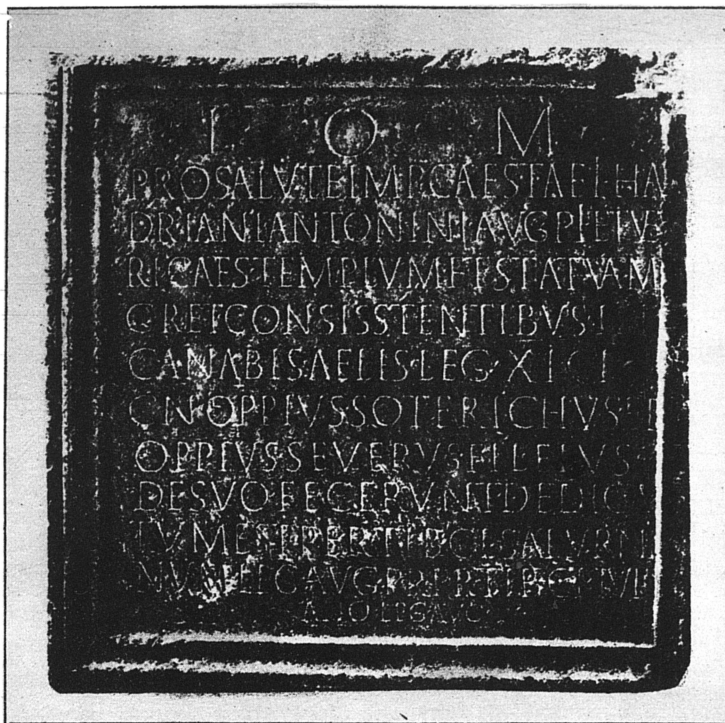 I O M
PRO SALVTE IMP CAES T AELI HA
DRIANI ANTONINI AVG PII ET VE
RI CAES TEMPLVM ET STATVAM
C R ET CONSISSTENTIBVS I
CANABIS AELIS LEG XI CL
CN OPPIVS SOTERICHVS E
OPPIVS SEVERVS FIL EIVS
DE SVO FECERVNT DEDICA
TVM EST PER TIB CL SATVRNI
NVM LEG AVG PR PR TIB CL IVLI
ANO LEG AVG